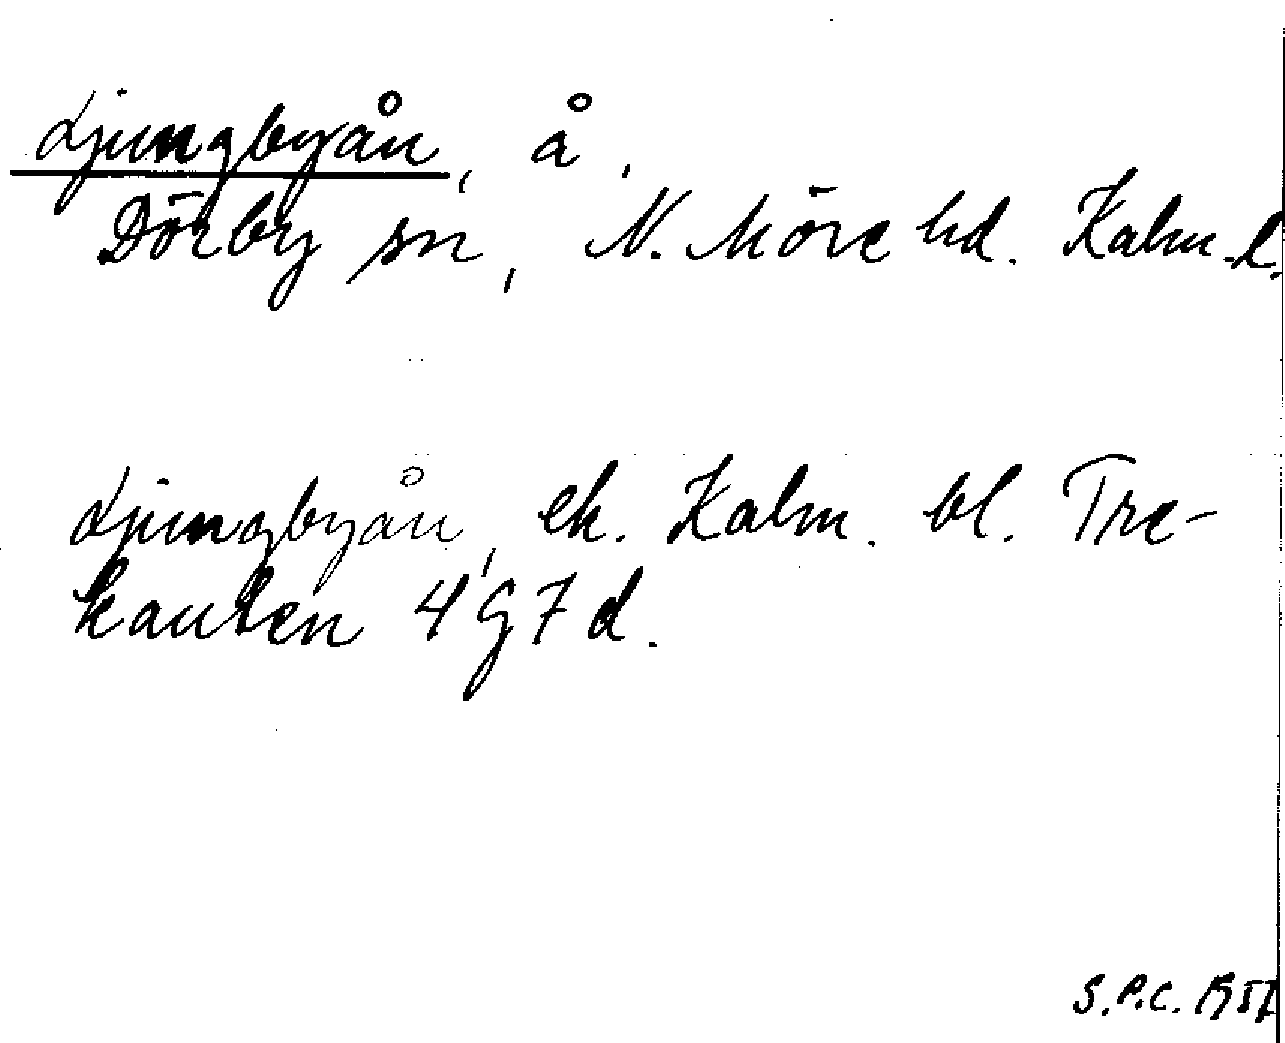 Ljungbyån, å,
Dörby sn, N. Möre hd. Kalm. l.
Ljungbyån, ek. Kalm. bl. Tre-
kanten 4 G 7 d.
S.P.C.